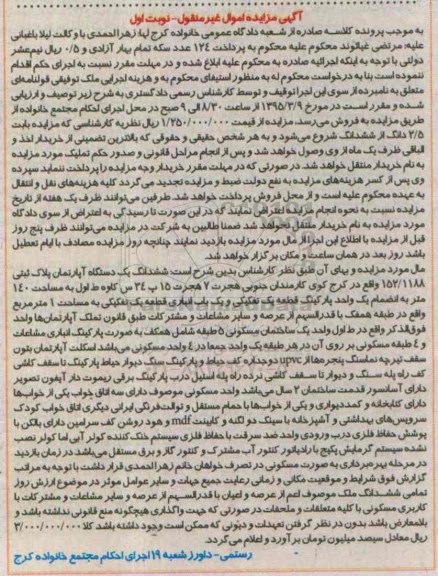 آگهی مزایده اموال غیرمنقول - نوبت اول
به موجب پرونده کلاسه صادره از شعبه دادگاه عمومی خانواده کرج لها زهرا احمدی با وکالت لیلا باغبانی
علیه: مرتضی غیاثوند محکوم علیه محکوم به پرداخت ۱۲۴ عدد سکه تمام بهار آزادی و ۰/۵ ریال نیم عشر
دولتی با توجه به اینکه اجرائیه صادره به محکوم علیه ابلاغ شده و در مهلت مقرر نسبت به اجرای حکم اقدام
ننموده است بنا به درخواست محکوم له به منظور استیفای محکوم به و هزینه اجرایی ملک توقیفی قولنامه‌ای
متعلق به نامبرده از سوی این اجرا توقیف و توسط کارشناس رسمی دادگستری به شرح زیر توصیف و ارزیابی
شده و مقرر است در مورخ ۱۳۹۵/۳/۹ از ساعت ۸/۳۰ الی ۹ صبح در محل اجرای احکام مجتمع خانواده از
طریق مزایده به فروش می‌رسد. مزایده از قیمت ۱/۲۵۰/۰۰۰/۰۰۰ ریال نظریه کارشناسی که مزایده بابت
۲/۵ دانگ از ششدانگ شروع می‌شود و به هر شخص حقیقی و حقوقی که بالاترین تضمینی از خریدار اخذ و
الباقی ظرف یک ماه از وی وصول خواهد شد و پس از انجام مراحل قانونی و صدور حکم تملیک مورد مزایده
به نام خریدار منتقل خواهد شد. در صورتی که در مهلت مقرر خریدار وجه مزایده را پرداخت ننماید سپرده
وی پس از کسر هزینه‌های مزایده به نفع دولت ضبط و مزایده تجدید می‌گردد کلیه هزینه‌های نقل و انتقال
به عهده محکوم علیه است و از محل فروش پرداخت خواهد شد. طرفین می‌توانند ظرف یک هفته از تاریخ
مزایده نسبت به نحوه انجام مزایده اعتراض نمایند که در این صورت تا رسیدگی به اعتراض از سوی دادگاه
مورد مزایده به نام خریدار منتقل نخواهد شد ضمنا طالبین به شرکت در مزایده می‌توانند ظرف پنج روز
قبل از مزایده با اطلاع این اجرا از مال مورد مزایده بازدید نمایند چنانچه روز مزایده مصادف با ایام تعطیل
باشد روز بعد در همان ساعت و مکان برگزار خواهد شد.
مال مورد مزایده و بهای آن طبق نظر کارشناس بدین شرح است: ششدانگ یک دستگاه آپارتمان پلاک ثبتی
۱۵۲/۱۱۸۸ واقع در کرج کوی کارمندان جنوبی هجرت ۷ هجرت ۱۵ پ ۳۴ س کاوه ط اول به مساحت ۱۴۰
متر به انضمام یک واحد پارکینگ قطعه یک تفکیکی و یک باب انباری قطعه یک تفکیکی به مساحت ۱ مترمربع
واقع در طبقه همکف با قدرالسهم از عرصه و سایر مشاعات و مشترکات طبق قانون تملک آپارتمان‌ها واحد
فوق‌الذکر واقع در ط اول واحد یک ساختمان مسکونی ۵ طبقه شامل همکف به صورت پارکینگ انباری مشاعات
و ۴ طبقه مسکونی بر روی آن در هر طبقه یک واحد جمعا در ۴ واحد مسکونی می‌باشد اسکلت آپارتمان بتون
سقف تیرچه نماسنگ پنجره‌ها از upvc دوجداره کف حیاط و پارکینگ سنگ دیوار حیاط پارکینگ تا سقف کاشی
کف راه پله سنگ و دیوار تا سقف کاشی نرده راه پله استیل درب پارکینگ برقی ریموت دار آیفون تصویر
دارای آسانسور قدمت ساختمان ۲ سال می‌باشد واحد مسکونی موصوف دارای سه اتاق خواب یکی از خواب‌ها
دارای کتابخانه و کمددیواری و یکی از خواب‌ها با حمام مستقل و توالت فرنگی ایرانی دیگری اتاق خواب کودک
سرویس‌های بهداشتی و آشپزخانه با سینک دو لگنه و کابینت mdf و هود روشن کف سرامیک دارای بالکن با
پوشش حفاظ فلزی درب ورودی واحد ضد سرقت با حفاظ فلزی سیستم خنک کننده کولر آبی اما کولر نصب
نشده سیستم گرمایش پکیج با رادیاتور کنتور آب مشترک و کنتور گاز و برق مستقل می‌باشد در زمان بازدید
در مرحله بهره‌برداری به صورت مسکونی در تصرف خواهان خانم زهرا احمدی قرار داشت با توجه به مراتب
گزارش فوق شرایط و موقعیت مکانی و زمانی رعایت جمیع جهات و سایر عوامل موثر در موضوع ارزش روز
تمامی ششدانگ ملک موصوف اعم از عرصه و اعیان با قدرالسهم از عرصه و سایر مشاعات و مشترکات با
کاربری مسکونی با کلیه متعلقات و ملحقات در صورتی که جهت واگذاری هیچگونه منع قانونی نداشته باشد و
بلامعارض باشد بدون در نظر گرفتن تعهدات و دیونی که ممکن است وجود داشته باشد کلا ۳/۰۰۰/۰۰۰/۰۰۰
ریال معادل سیصد میلیون تومان برآورد و اعلام می‌گردد.
رستمی - داورز شعبه ۱۹ اجرای احکام مجتمع خانواده کرج